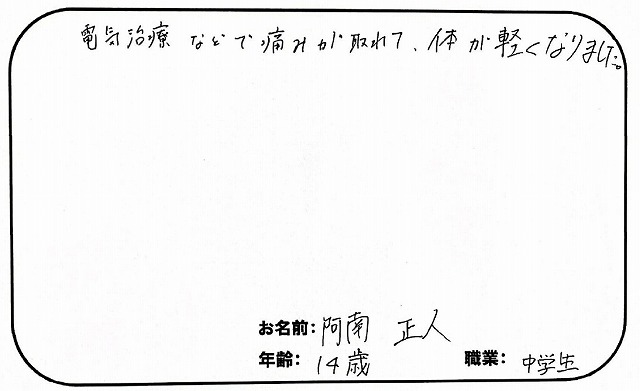 電気治療などで痛みが取れて、体が軽くなりました。
お名前: 阿南 正人
年齢: 14歳 職業: 中学生